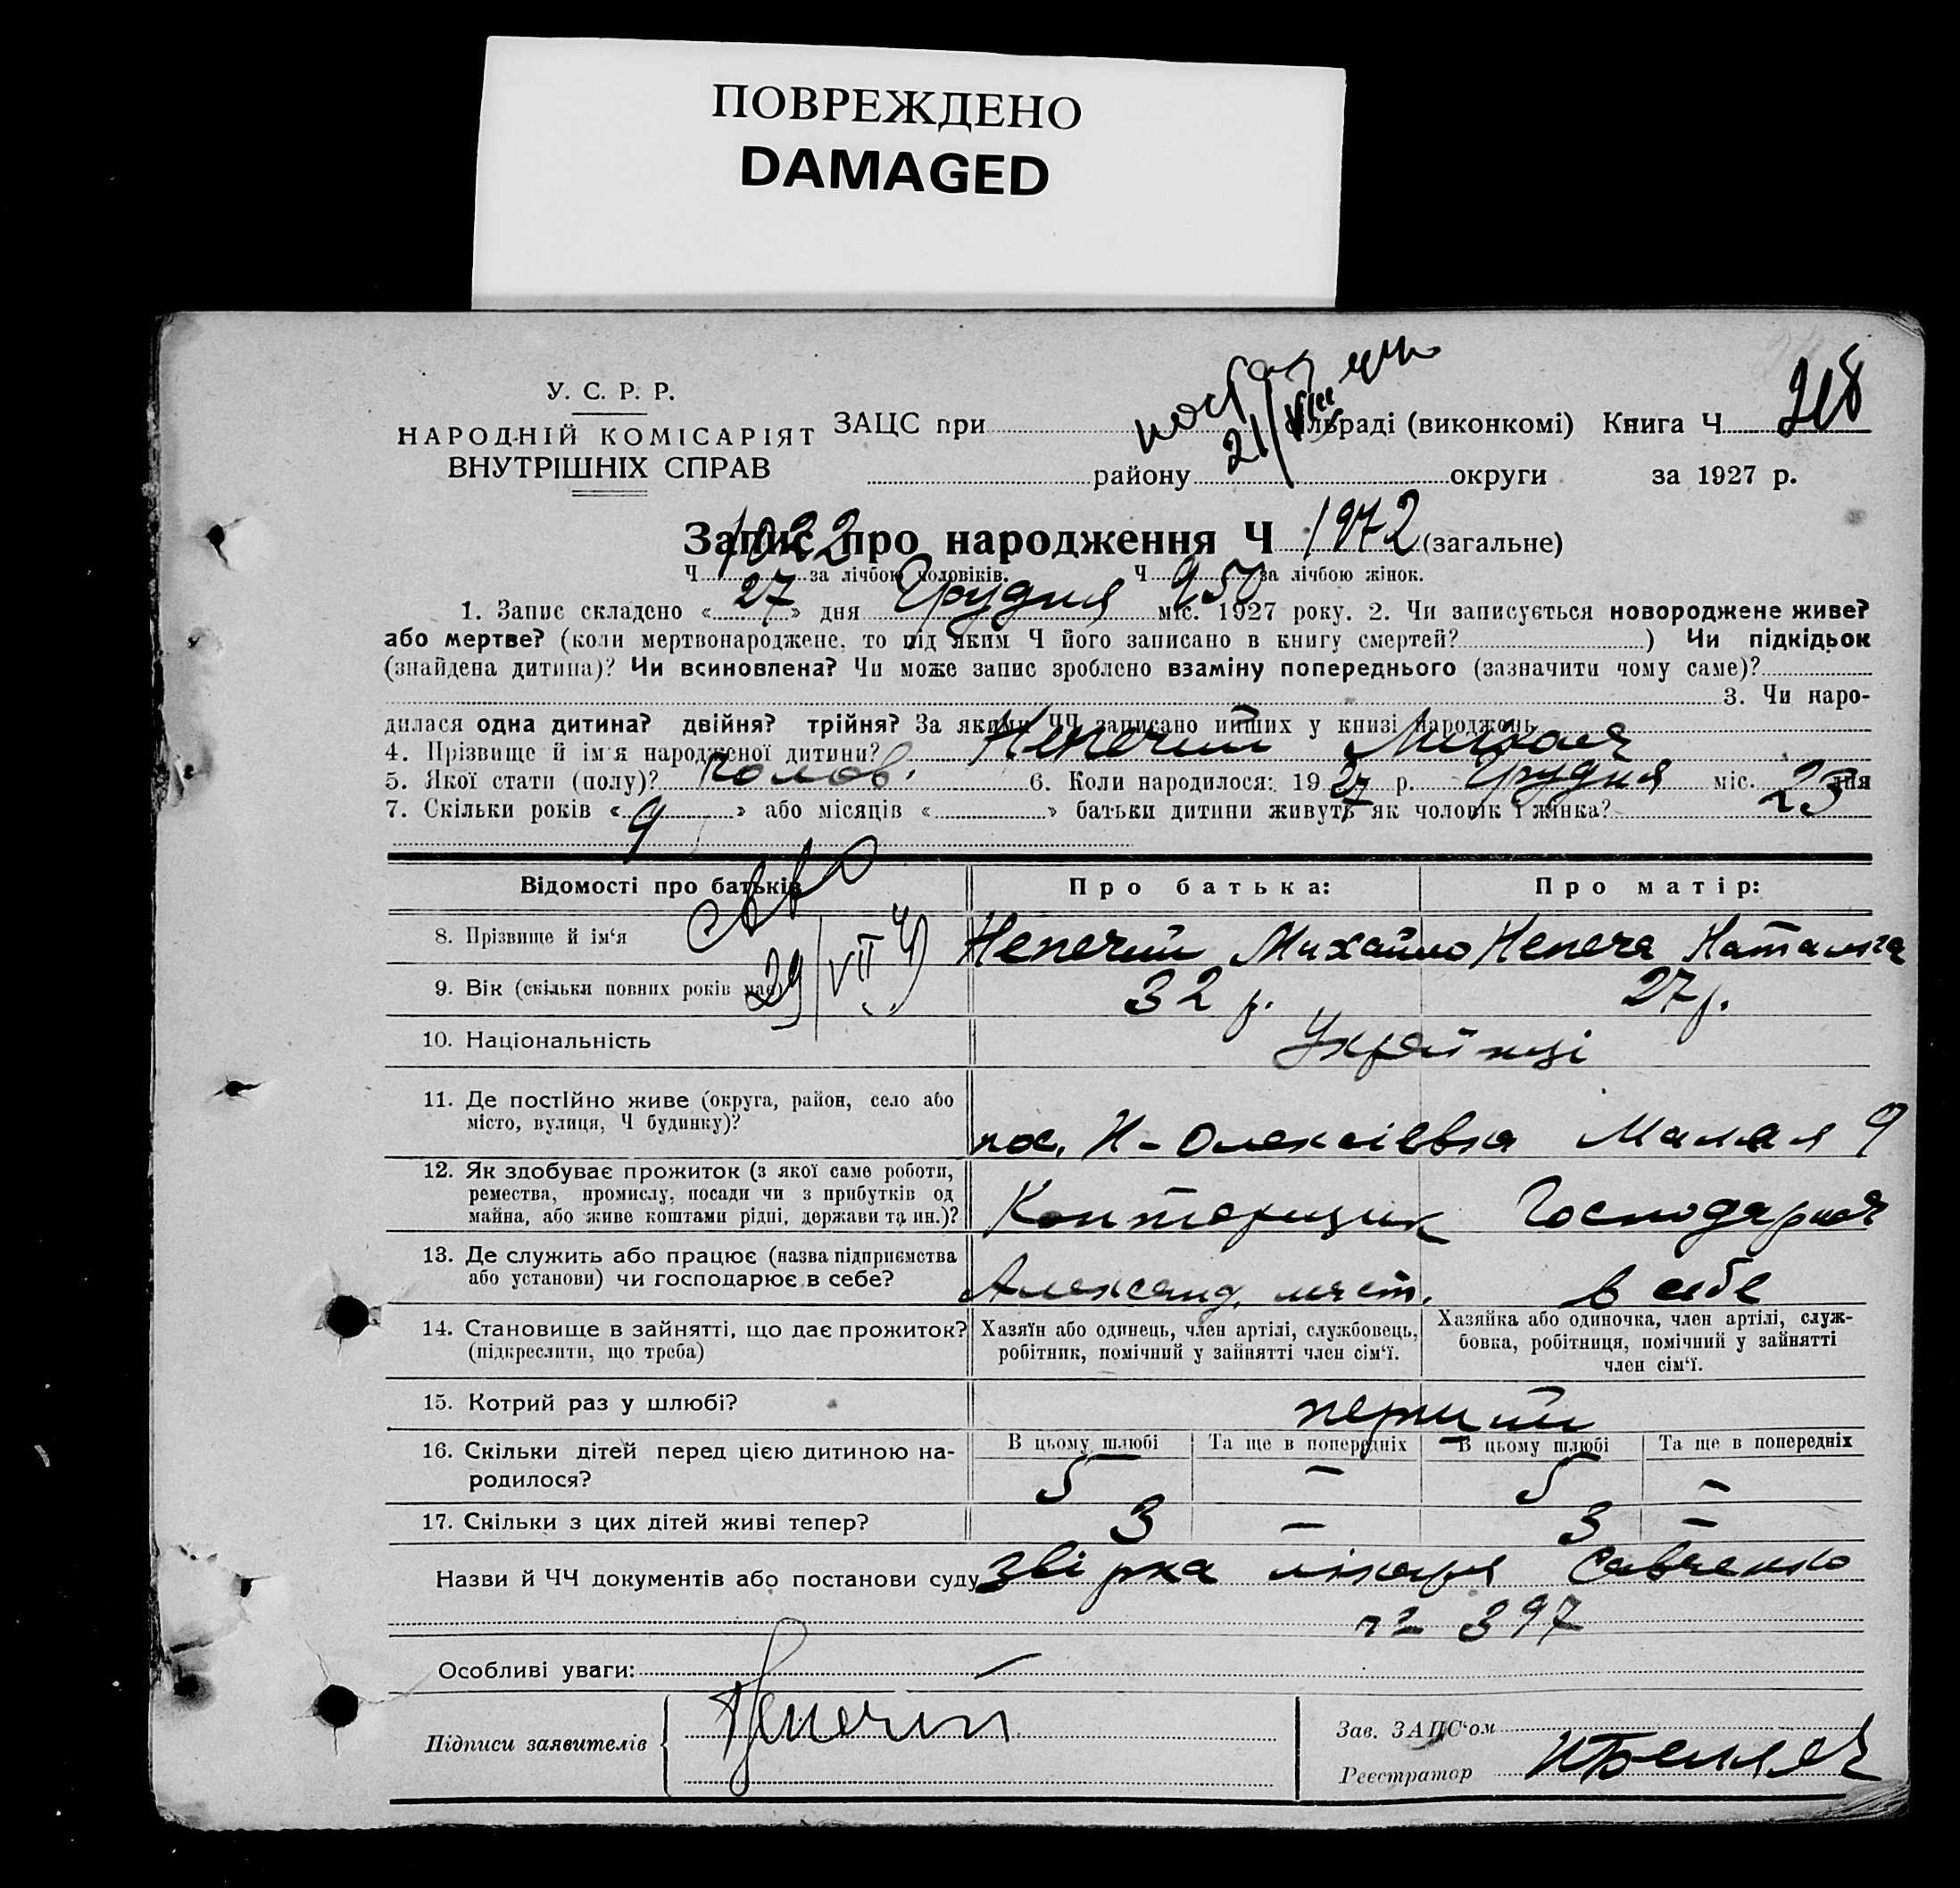 ПОВРЕЖДЕНО
DAMAGED
У. С. Р. Р.
НАРОДНІЙ КОМІСАРІЯТ
ВНУТРІШНІХ СПРАВ
ЗАЦС при сільраді (виконкомі) Книга Ч 218
21/VIII
району округи за 1927 р.
Запис про народження Ч 1972 (загальне)
Ч 1022 за лічбою чоловіків. Ч 950 за лічбою жінок.
1. Запис складено «27» дня Грудня міс. 1927 року. 2. Чи записується новороджене живе?
або мертве? (коли мертвонароджене, то під яким Ч його записано в книгу смертей? ) Чи підкідьок
(знайдена дитина)? Чи всиновлена? Чи може запис зроблено взаміну попереднього (зазначити чому саме)?
3. Чи наро-
дилася одна дитина? двійня? трійня? За якими ЧЧ записано инших у книзі народжень
4. Прізвище й ім'я народженої дитини? Непечий Микола
5. Якої стати (полу)? чолов. 6. Коли народилося: 1927 р. Грудня міс. 23 дня
7. Скільки років «9» або місяців « » батьки дитини живуть як чоловік і жінка?
Відомості про батьків Про батька: Про матір:
8. Прізвище й ім'я Непечий Михайло Непеча Наталія
9. Вік (скільки повних років має) 32 р. 27 р.
29/VII
10. Національність Українці
11. Де постійно живе (округа, район, село або
місто, вулиця, Ч будинку)? пос. Н-Олексіївка Малая 9
12. Як здобуває прожиток (з якої саме роботи,
ремества, промислу, посади чи з прибутків од
майна, або живе коштами рідні, держави та ин.)? Конторщик Господарюя
13. Де служить або працює (назва підприємства
або установи) чи господарює в себе? Александ. в себе
14. Становище в зайнятті, що дає прожиток? Хазяїн або одинець, член артілі, службовець, Хазяйка або одиночка, член артілі, служ-
(підкреслити, що треба) робітник, помічний у зайнятті член сім'ї. бовка, робітниця, помічний у зайнятті
член сім'ї.
15. Котрий раз у шлюбі? перший
16. Скільки дітей перед цією дитиною на- В цьому шлюбі Та ще в попередніх В цьому шлюбі Та ще в попередніх
родилося? 5 – 5 –
17. Скільки з цих дітей живі тепер? 3 – 3 –
Назви й ЧЧ документів або постанови суду звірка лікаря Савченко
№ 397
Особливі уваги: –
Підписи заявителів Непечий
Зав. ЗАЦС'ом
Реєстратор